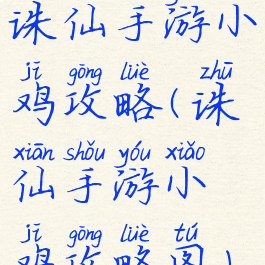 诛仙手游小
jī gōng lüè zhū
鸡攻略(诛
xiān shǒu yóu xiǎo
仙手游小
jī gōng lüè tú
鸡攻略图)